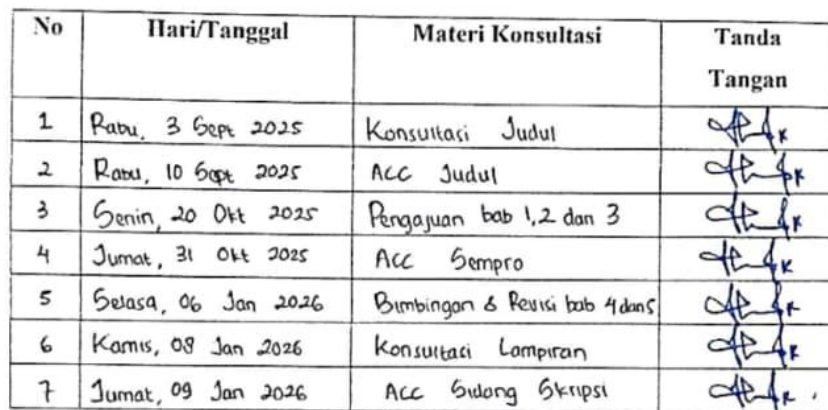 No Hari/Tanggal Materi Konsultasi Tanda
Tangan
1 Rabu, 3 Sept 2025 Konsultasi Judul
2 Rabu, 10 Sept 2025 ACC Judul
3 Senin, 20 Okt 2025 Pengajuan bab 1,2 dan 3
4 Jumat, 31 Okt 2025 ACC Sempro
5 Selasa, 06 Jan 2026 Bimbingan & Revisi bab 4 dan 5
6 Kamis, 08 Jan 2026 Konsultasi Lampiran
7 Jumat, 09 Jan 2026 Acc Sidang Skripsi